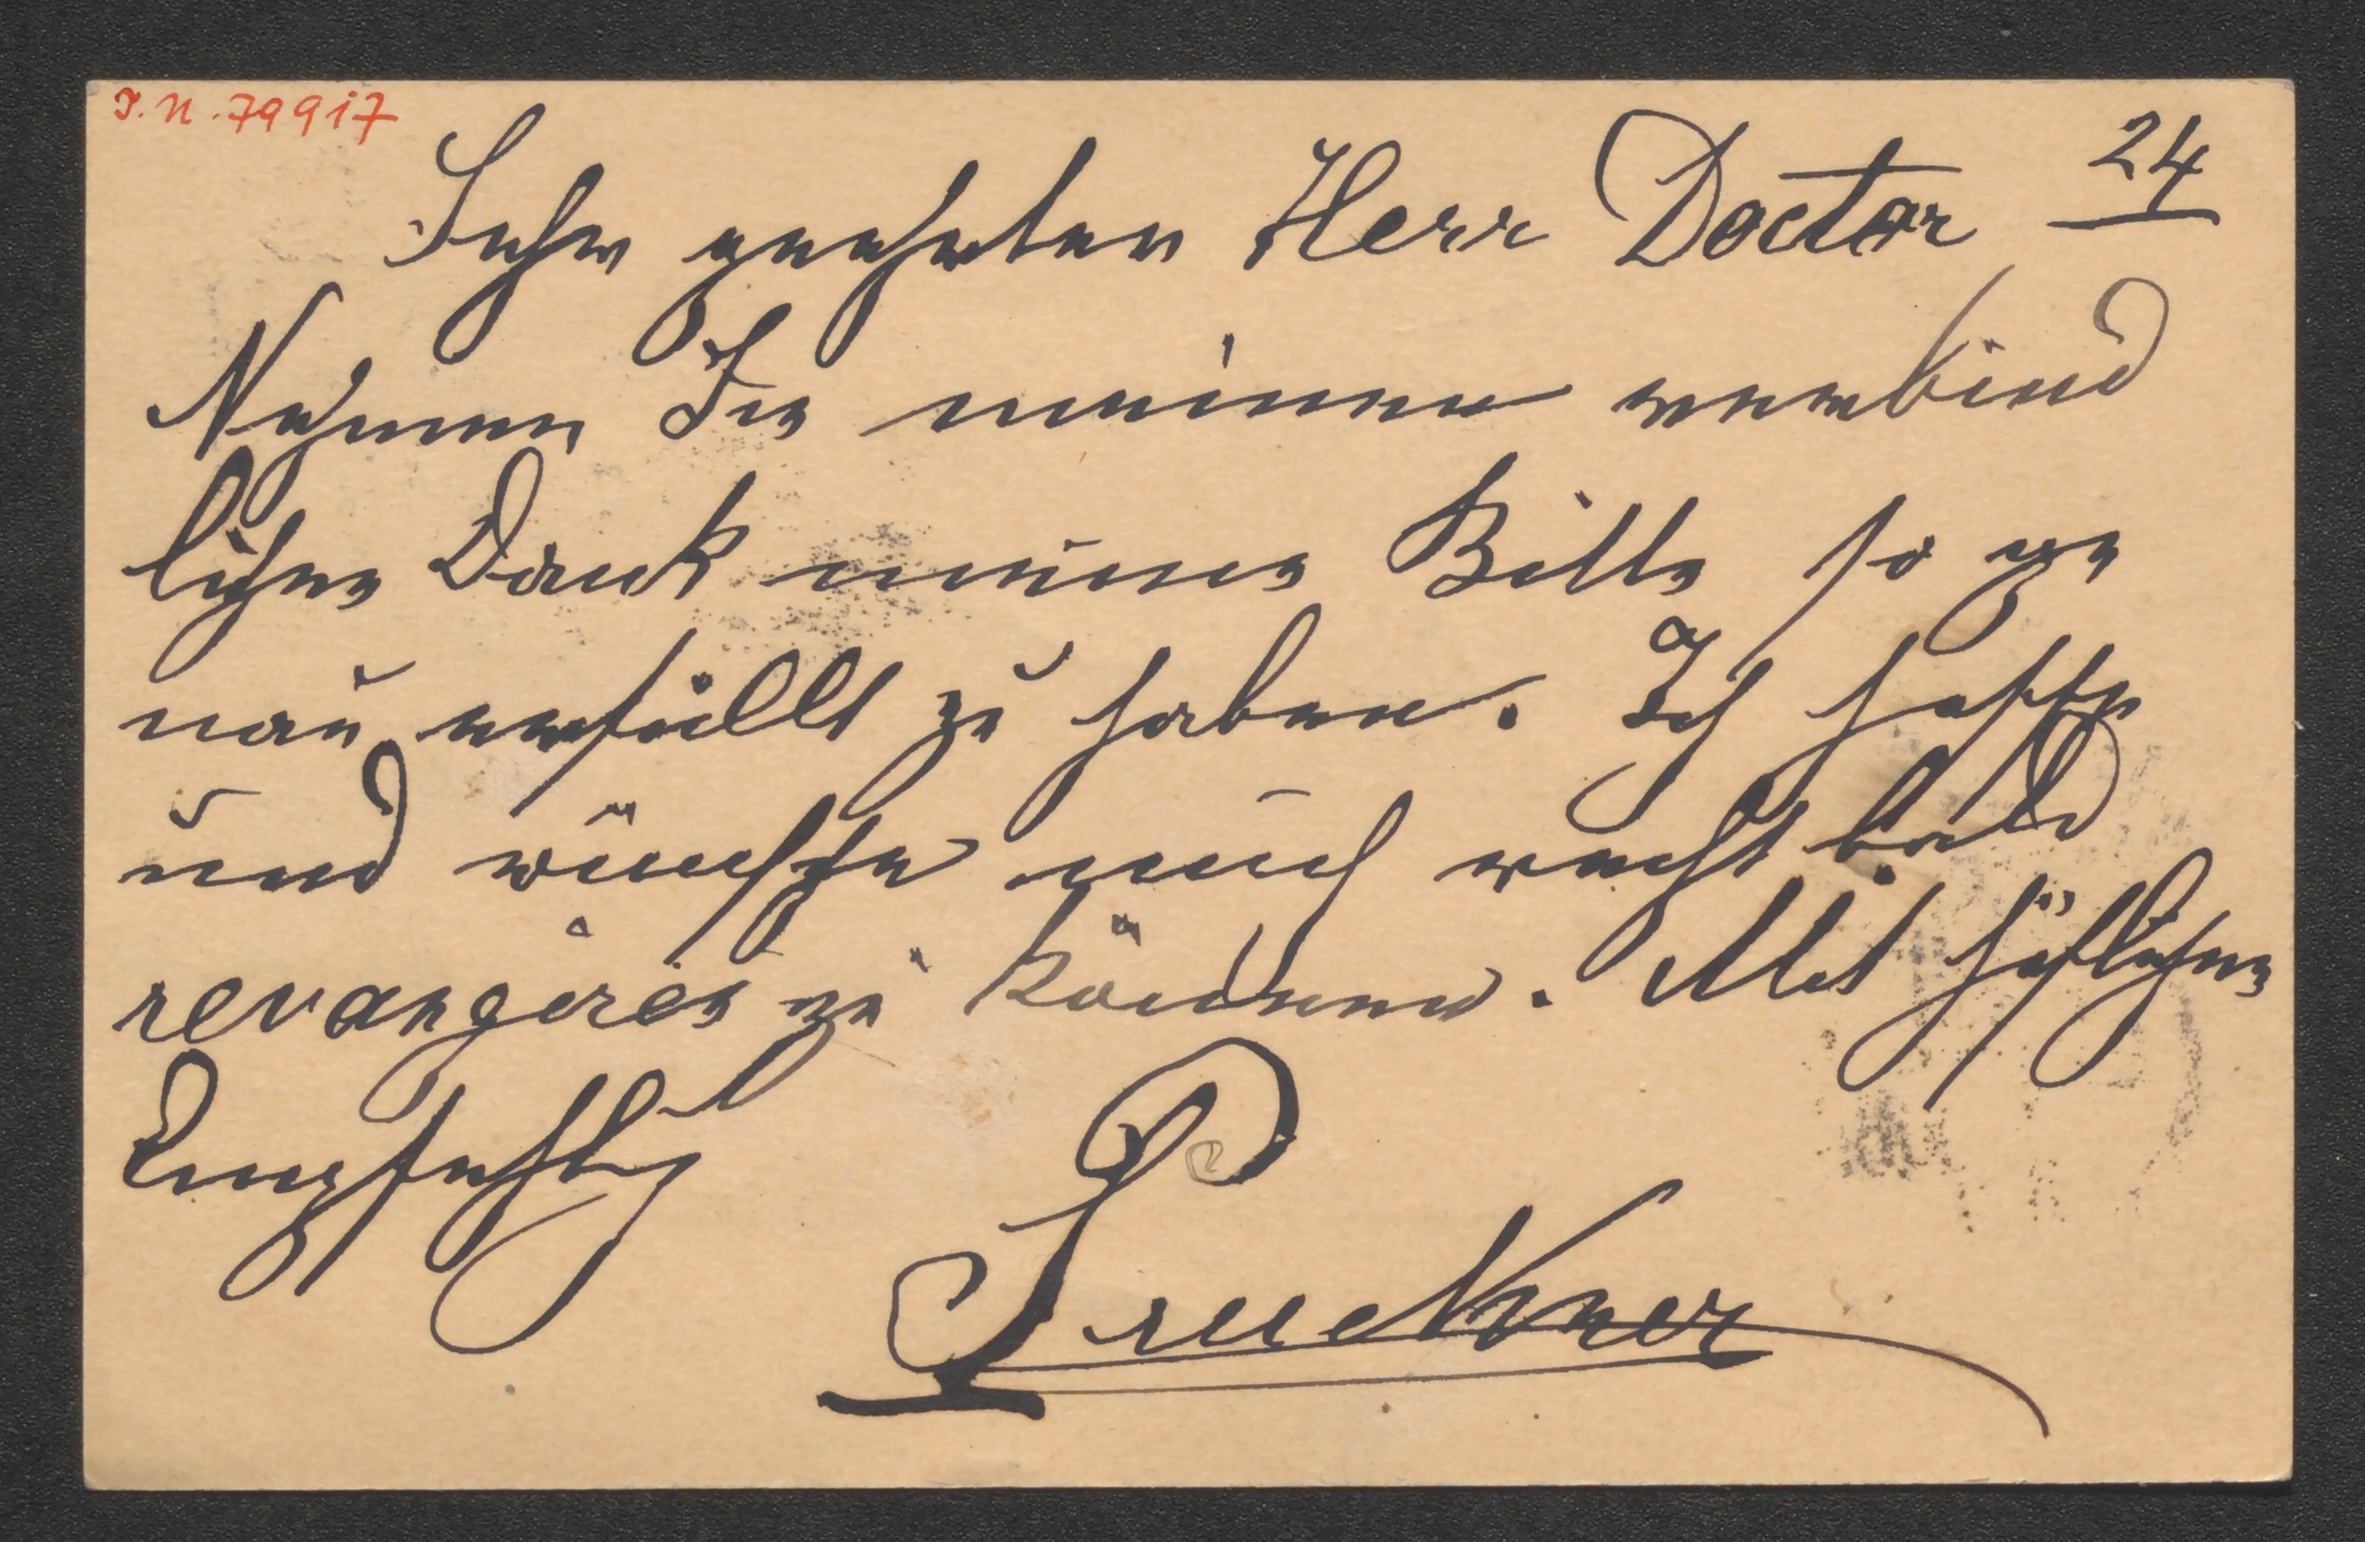 I. N. 79917
24
Sehr geehrter Herr Doctor
Nehmen Sie meinen verbind
lichen Dank meine Bitte so ge
nau erfüllt zu haben. Ich hoffe
und wünsche mich recht bald
revangieren zu können. Mit höflichen
Empfehlg
Pruckner